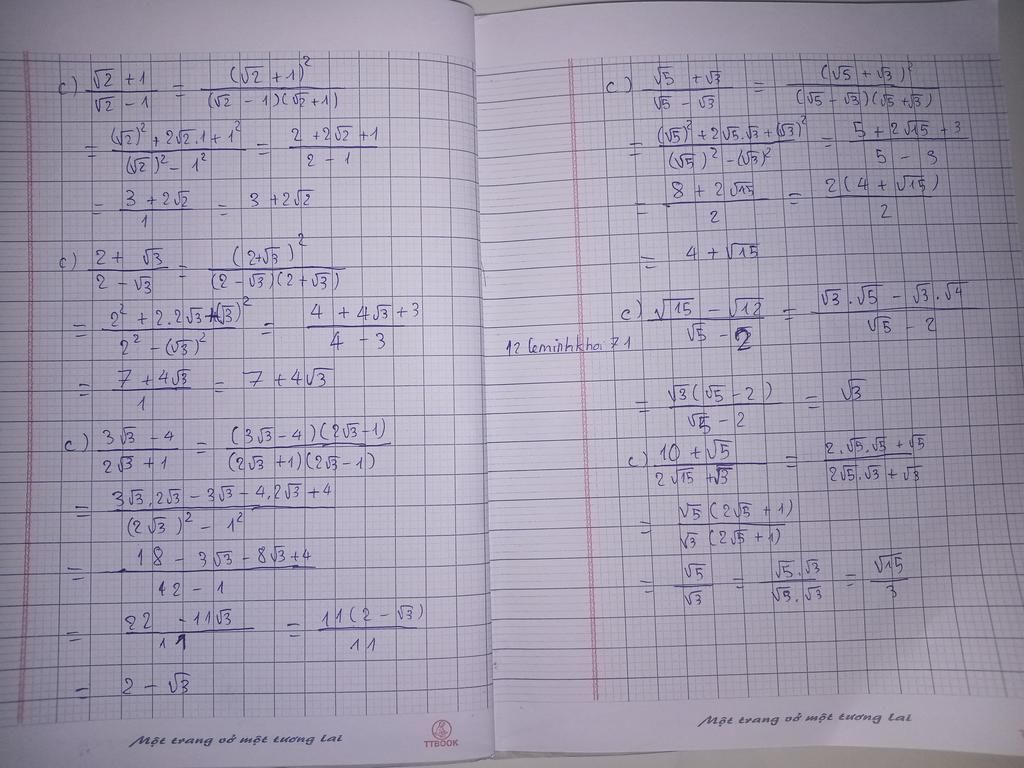 c) (√2 + 1)/(√2 - 1) = (√2 + 1)²/((√2 - 1)(√2 + 1))
= ((√2)² + 2√2.1 + 1²)/((√2)² - 1²) = (2 + 2√2 + 1)/(2 - 1)
= (3 + 2√2)/1 = 3 + 2√2
c) (2 + √3)/(2 - √3) = (2+√3)²/((2 - √3)(2 + √3))
= (2² + 2.2√3 + (√3)²)/(2² - (√3)²) = (4 + 4√3 + 3)/(4 - 3)
= (7 + 4√3)/1 = 7 + 4√3
c) (3√3 - 4)/(2√3 + 1) = ((3√3 - 4)(2√3 - 1))/((2√3 + 1)(2√3 - 1))
= (3√3.2√3 - 3√3 - 4.2√3 + 4)/((2√3)² - 1²)
= (18 - 3√3 - 8√3 + 4)/(12 - 1)
= (22 - 11√3)/11 = 11(2 - √3)/11
= 2 - √3
Một trang vở một tương lai
TTBOOK
c) (√5 + √3)/(√5 - √3) = (√5 + √3)²/((√5 - √3)(√5 + √3))
= ((√5)² + 2√5.√3 + (√3)²)/((√5)² - (√3)²) = (5 + 2√15 + 3)/(5 - 3)
= (8 + 2√15)/2 = 2(4 + √15)/2
= 4 + √15
c) (√15 - √12)/(√5 - 2) = (√3.√5 - √3.√4)/(√5 - 2)
12 leminhkhai 71
= √3(√5 - 2)/(√5 - 2) = √3
c) (10 + √5)/(2√15 + √3) = (2.√5.√5 + √5)/(2√5.√3 + √3)
= √5(2√5 + 1)/(√3(2√5 + 1))
= √5/√3 = (√5.√3)/(√3.√3) = √15/3
Một trang vở một tương lai